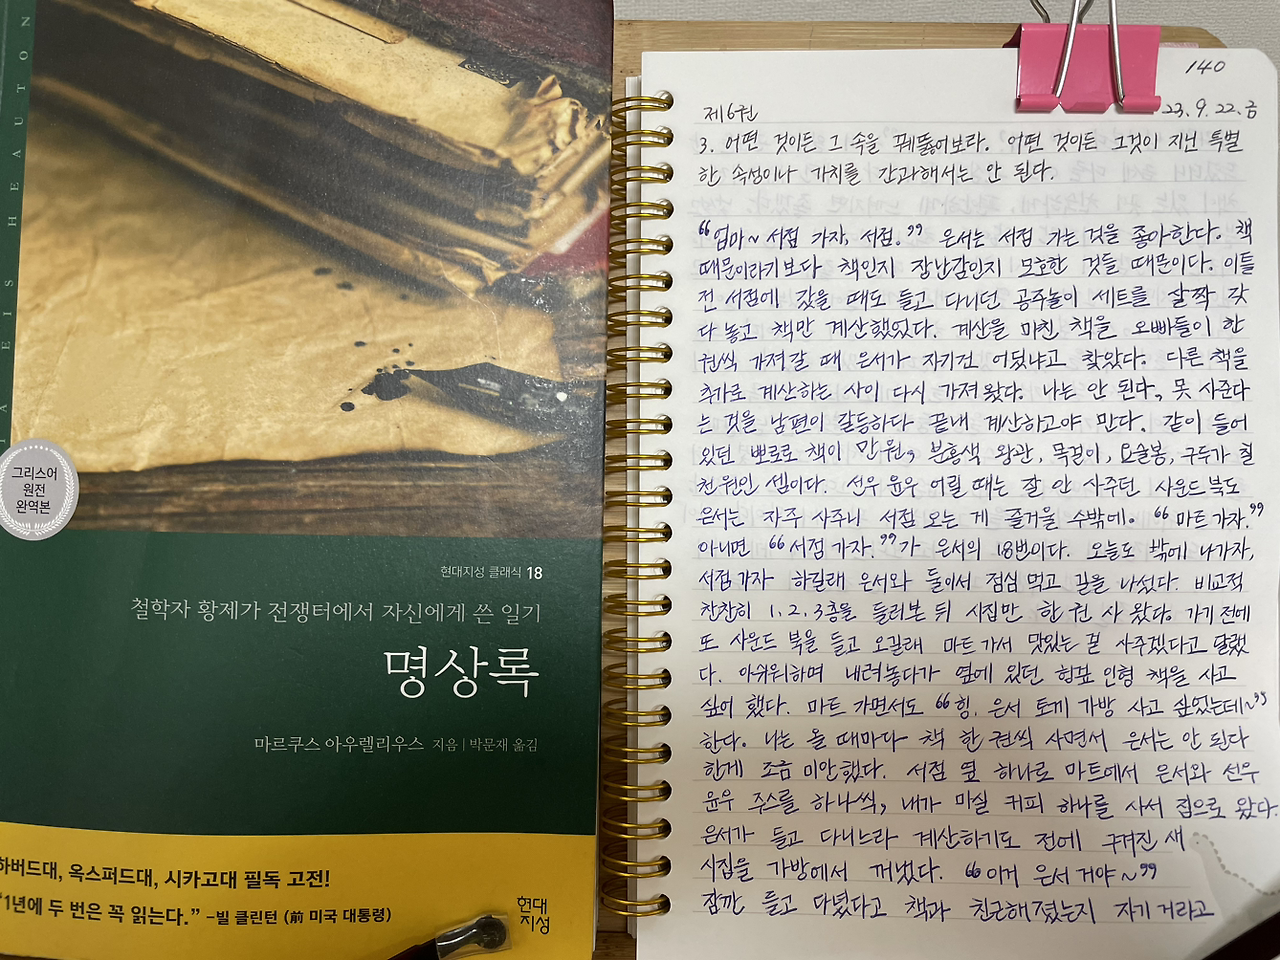 TA EIS HEAUTON
그리스어
원전
완역본
현대지성 클래식 18
철학자 황제가 전쟁터에서 자신에게 쓴 일기
명상록
마르쿠스 아우렐리우스 지음 | 박문재 옮김
하버드대, 옥스퍼드대, 시카고대 필독 고전!
"1년에 두 번은 꼭 읽는다." –빌 클린턴 (前 미국 대통령)
현대
지성
140
제6권
23. 9. 22. 금
3. 어떤 것이든 그 속을 꿰뚫어보라. 어떤 것이든 그것이 지닌 특별
한 속성이나 가치를 간과해서는 안 된다.
"엄마~ 서점 가자, 서점." 은서는 서점 가는 것을 좋아한다. 책
때문이라기보다 책인지 장난감인지 모호한 것들 때문이다. 이틀
전 서점에 갔을 때도 들고 다니던 공주놀이 세트를 살짝 갖
다 놓고 책만 계산했었다. 계산을 마친 책을 오빠들이 한
권씩 가져갈 때 은서가 자기건 어딨냐고 찾았다. 다른 책을
추가로 계산하는 사이 다시 가져왔다. 나는 안 된다, 못 사준다
는 것을 남편이 갈등하다 끝내 계산하고야 만다. 같이 들어
있던 뽀로로 책이 만 원, 분홍색 왕관, 목걸이, 요술봉, 구두가 칠
천 원인 셈이다. 선우 윤우 어릴 때는 잘 안 사주던 사운드 북도
은서는 자주 사주니 서점 오는 게 즐거울 수밖에. "마트 가자."
아니면 "서점 가자."가 은서의 18번이다. 오늘도 밖에 나가자,
서점 가자 하길래 은서와 둘이서 점심 먹고 길을 나섰다. 비교적
찬찬히 1, 2, 3층을 둘러본 뒤 시집만 한 권 사 왔다. 가기 전에
또 사운드 북을 들고 오길래 마트 가서 맛있는 끈 사주겠다고 달랬
다. 아쉬워하며 내려놓다가 옆에 있던 헝겊 인형 책을 사고
싶어 했다. 마트 가면서도 "힝, 은서 토끼 가방 사고 싶었는데~"
한다. 나는 올 때마다 책 한 권씩 사면서 은서는 안 된다
한게 조금 미안했다. 서점 옆 하나로 마트에서 은서와 선우
윤우 주스를 하나씩, 내가 마실 커피 하나를 사서 집으로 왔다.
은서가 들고 다니느라 계산하기도 전에 구겨진 새
시집을 가방에서 꺼냈다. "이거 은서 거야~"
잠깐 들고 다녔다고 책과 친근해졌는지 자기 거라고